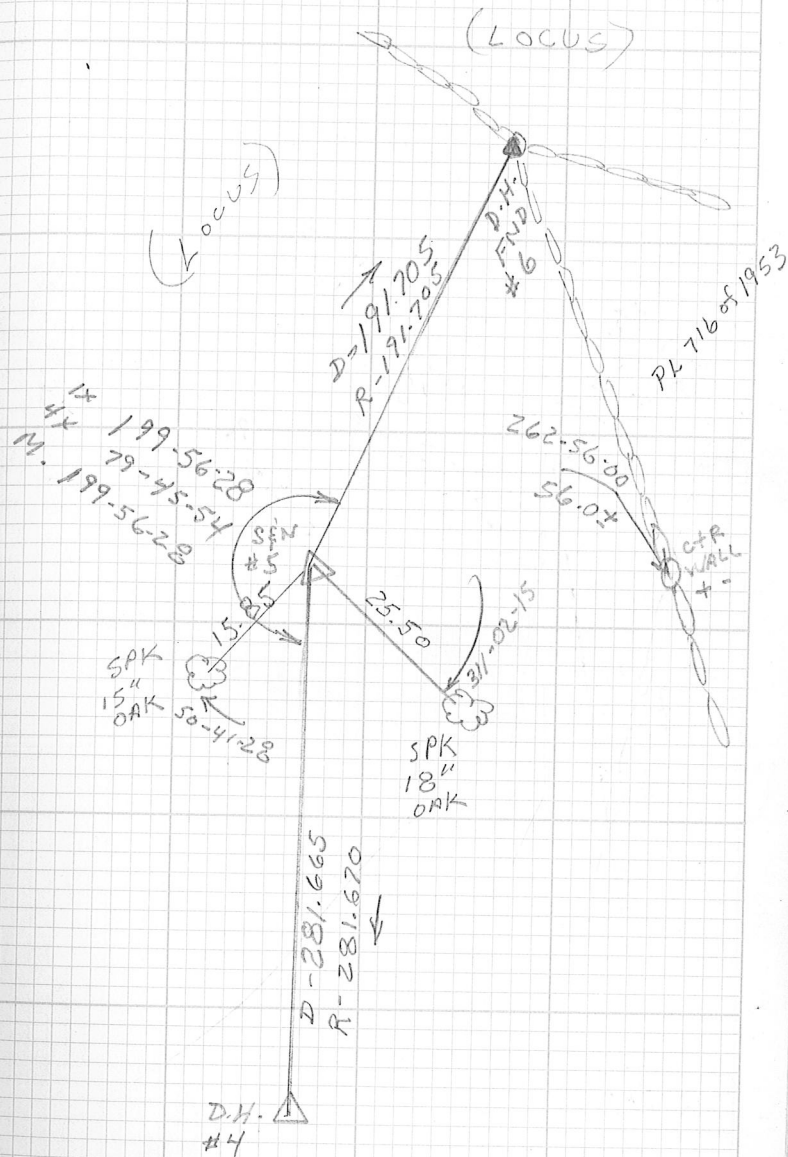 (LOCUS)
(LOCUS)
D.H.
FND
#6
D-191.705
R-191.705
PL 716 of 1953
1X 199-56-28
4X 79-45-54
M. 199-56-28
262-56-00
56.0±
CTR
WALL
+-
#5
15.85
25.50
311-02-15
SPK
15"
OAK
50-41-28
SPK
18"
OAK
D-281.665
R-281.670
D.H.
#4